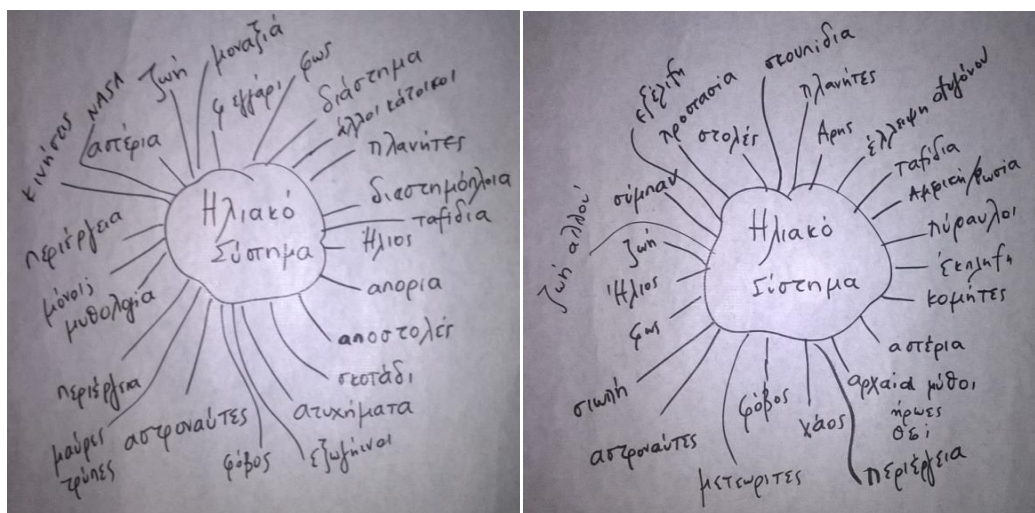 Ηλιακό
Σύστημα
κινήσεις
NASA
αστέρια
ζωή
μοναξιά
φεγγάρι
φως
διάστημα
άλλοι κάτοικοι
πλανήτες
διαστημόπλοια
ταξίδια
Ήλιος
απορια
αποστολές
σκοτάδι
ατυχήματα
εξωγήινοι
φόβος
αστροναύτες
μαύρες
τρύπες
περιέργεια
μυθολογία
μόνοι;
περιέργεια
Ηλιακό
Σύστημα
ζωή αλλού
σύμπαν
προστασία
εξέλιξη
στολές
σκουπίδια
πλανήτες
Αρης
έλλειψη οξυγόνου
ταξίδια
Αμερική/Ρωσία
πύραυλοι
έκπληξη
κομήτες
αστέρια
αρχαίοι μύθοι
ήρωες
θεοί
περιέργεια
χάος
φόβος
μετεωρίτες
αστροναύτες
σιωπή
φως
Ήλιος
ζωή